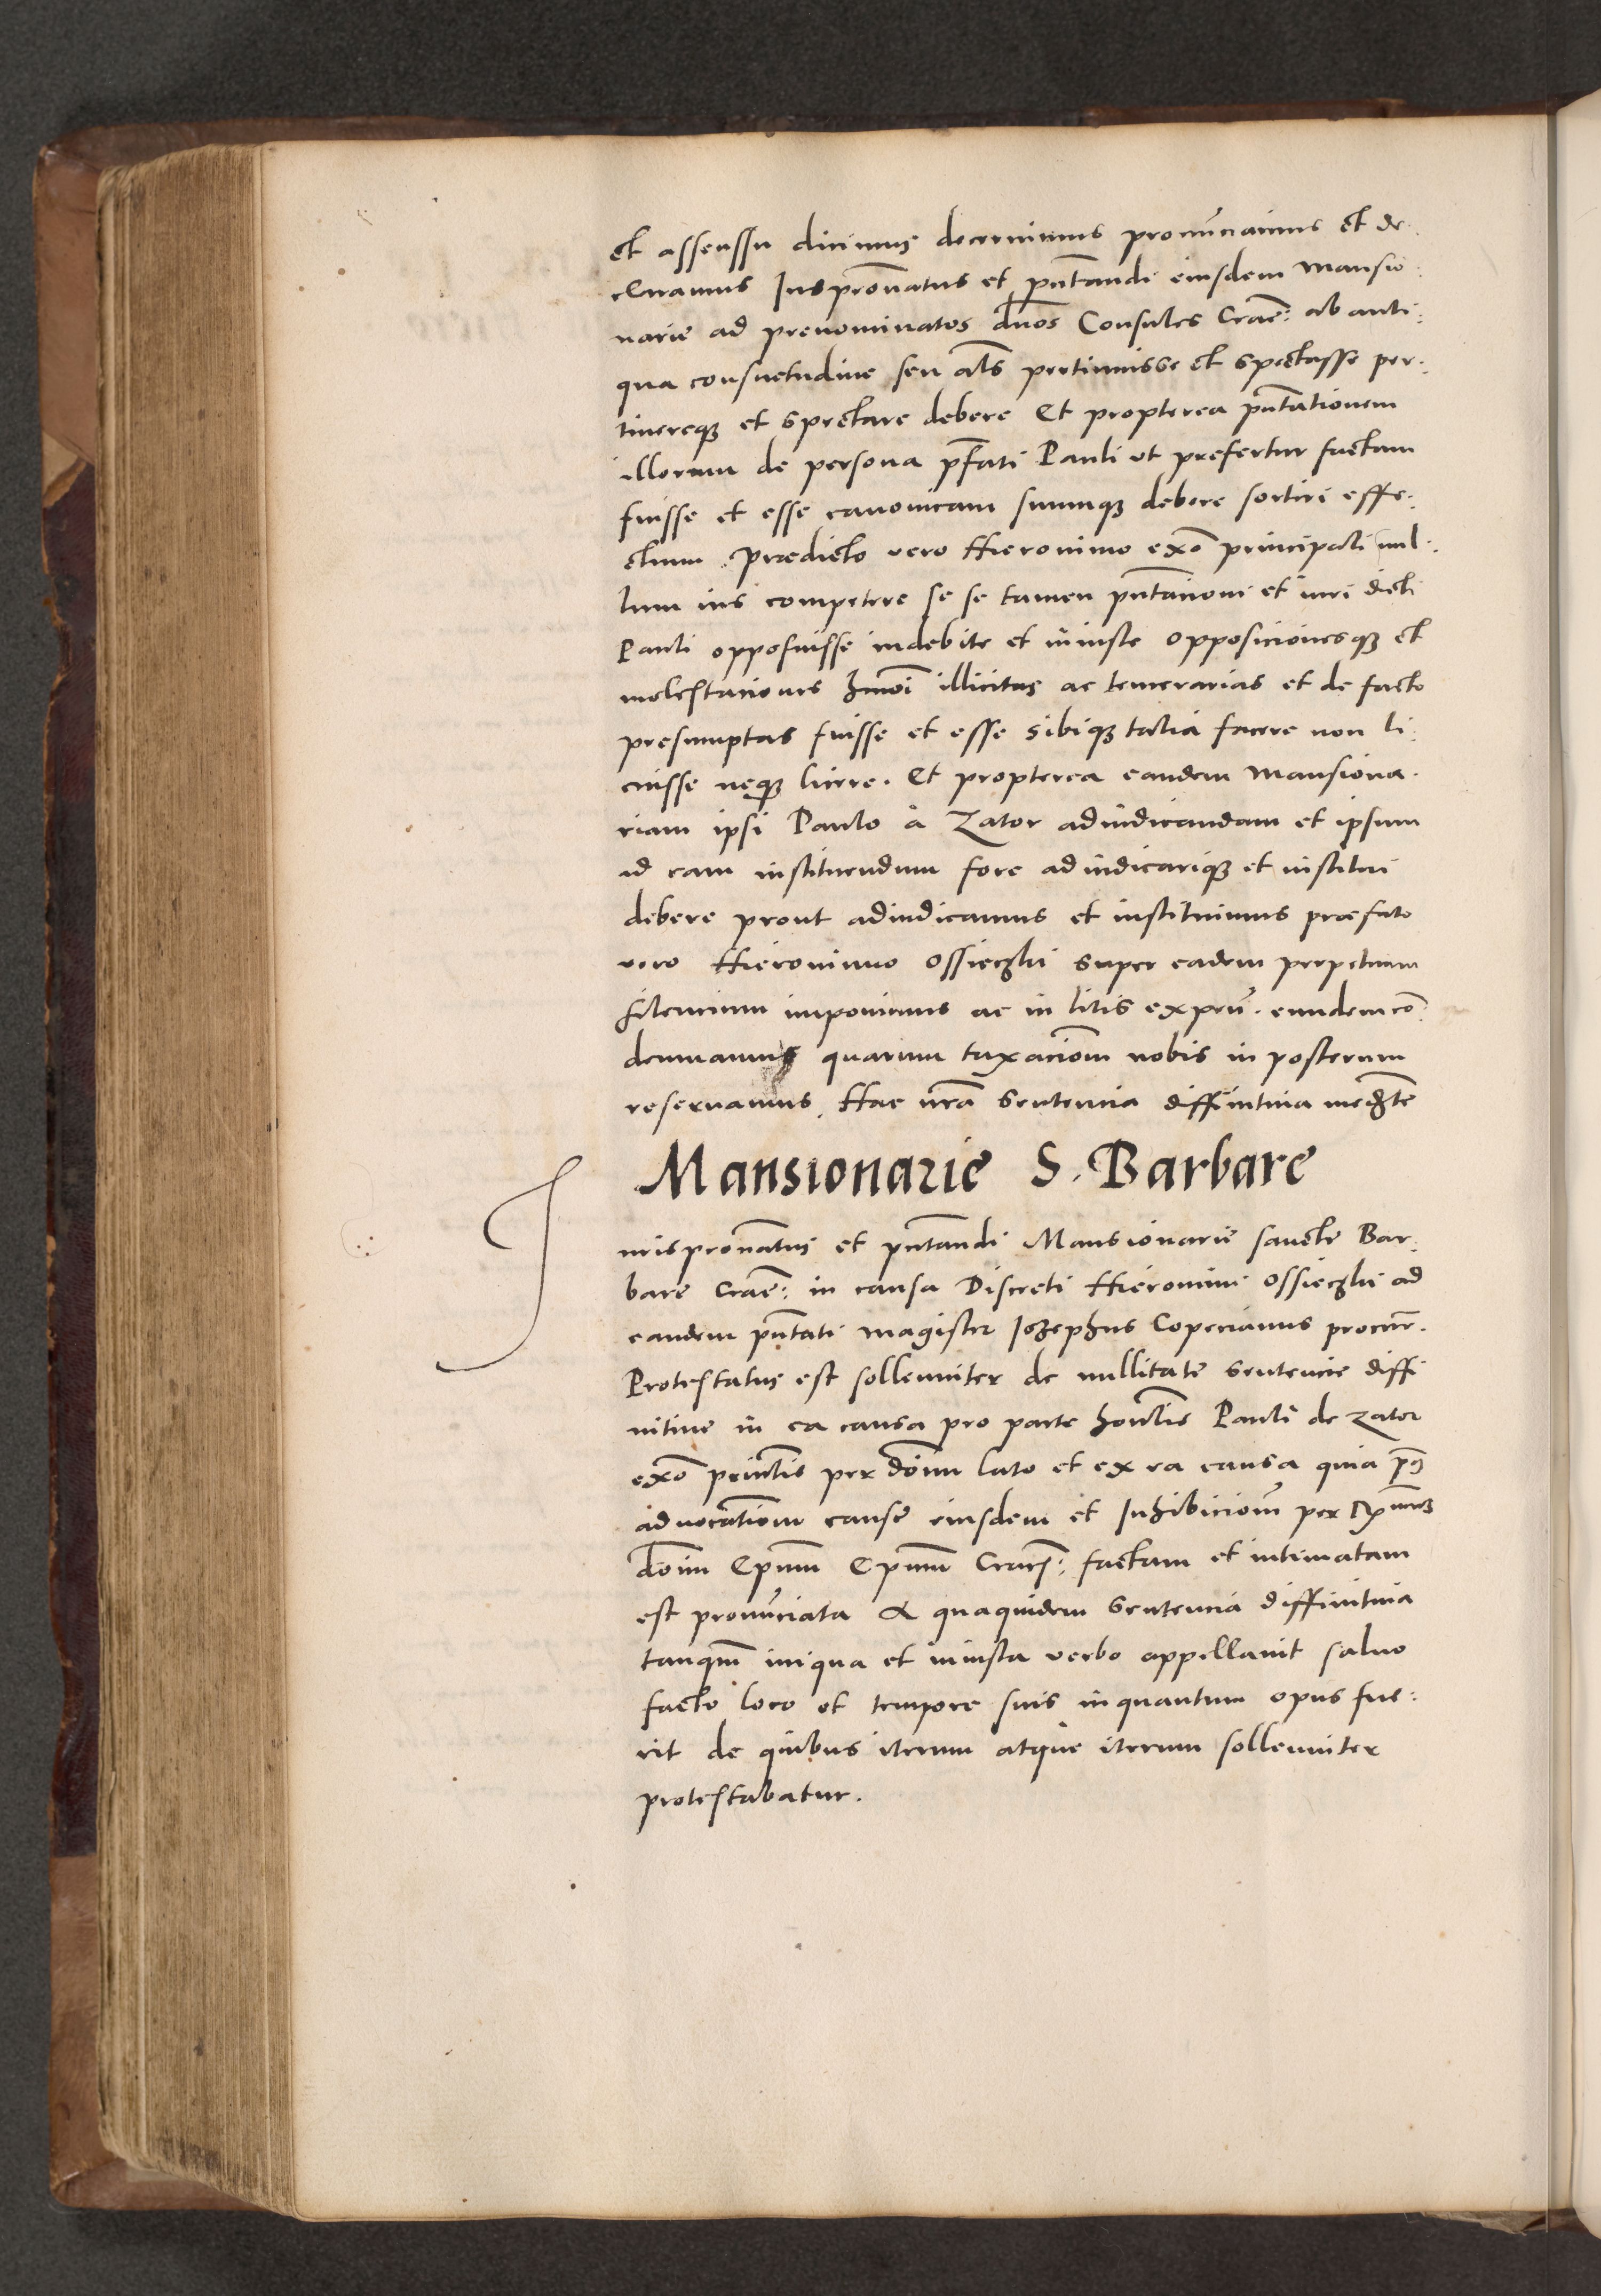 et assenssu dicimus decernimus pronu͞nciamus et de.
claramus Juspro͞natus et p͞ntandi eiusdem Mansio:
narie ad prenominatos d͞nos Consules Crac͞: ab anti:
qua consuetudine seu al͞s pertinuisse et spectasse per:
tinereqꝫ et spectare debere Et propterea p͞ntationem
illorum de persona p͞fati Pauli ut prefertur factam
fuisse et esse canonicam suumqꝫ debere sortiri effe:
ctum. Prædicto vero Hieronimo exo͞ principali nul:
lum ius competere se se tamen p͞ntacioni et iuri dicti
Pauli opposuisse indebite et iniuste opposicionesqꝫ et
molestaciones hm͞oi illicitas ac temerarias et de facto
presumptas fuisse et esse sibiqꝫ talia facere non li:
cuisse neqꝫ licere. Et propterea eandem Mansiona.
riam ipsi Paulo à Zator adiudicandam et ipsum
ad eam instituendum fore adiudicariqꝫ et institui
debere prout adiudicamus et instituimus præfato
vero Hieronimo Ossieczki super eadem perpetuum
silencium imponimus ac in litis expen͞. eundem co͞
demnamus quarum taxacio͞m nobis in posterum
reservamus. Hac n͞ra sentencia diffinitiva med͞te
Mansionarie S. Barbare
Jurispro͞natus et p͞ntandi Mansionarie sancte Bar:
bare Crac͞: in causa Discreti Hieronimi Ossieczki ad
eandem p͞ntati magister Jozephus Copecianus procur͞.
Protestatus est sollenniter de nullitate sentencie diffi
nitive in ea causa pro parte hon͞lis Pauli de Zator
exo͞ prin͞lis per do͞m lato et ex ea causa quia
advocatio͞m cause eiusdem et Inhibicio͞m per R͞mum
do͞m Ep͞um Ep͞um Crac͞: factam et intimatam
est pronu͞nciata A quaquidem sentencia diffinitiva
tanq͞m iniqua et iniusta verbo appellavit salvo
facto loco et tempore suis inquantum opus fue:
rit de quibus iterum atque iterum sollenniter
protestabatur.